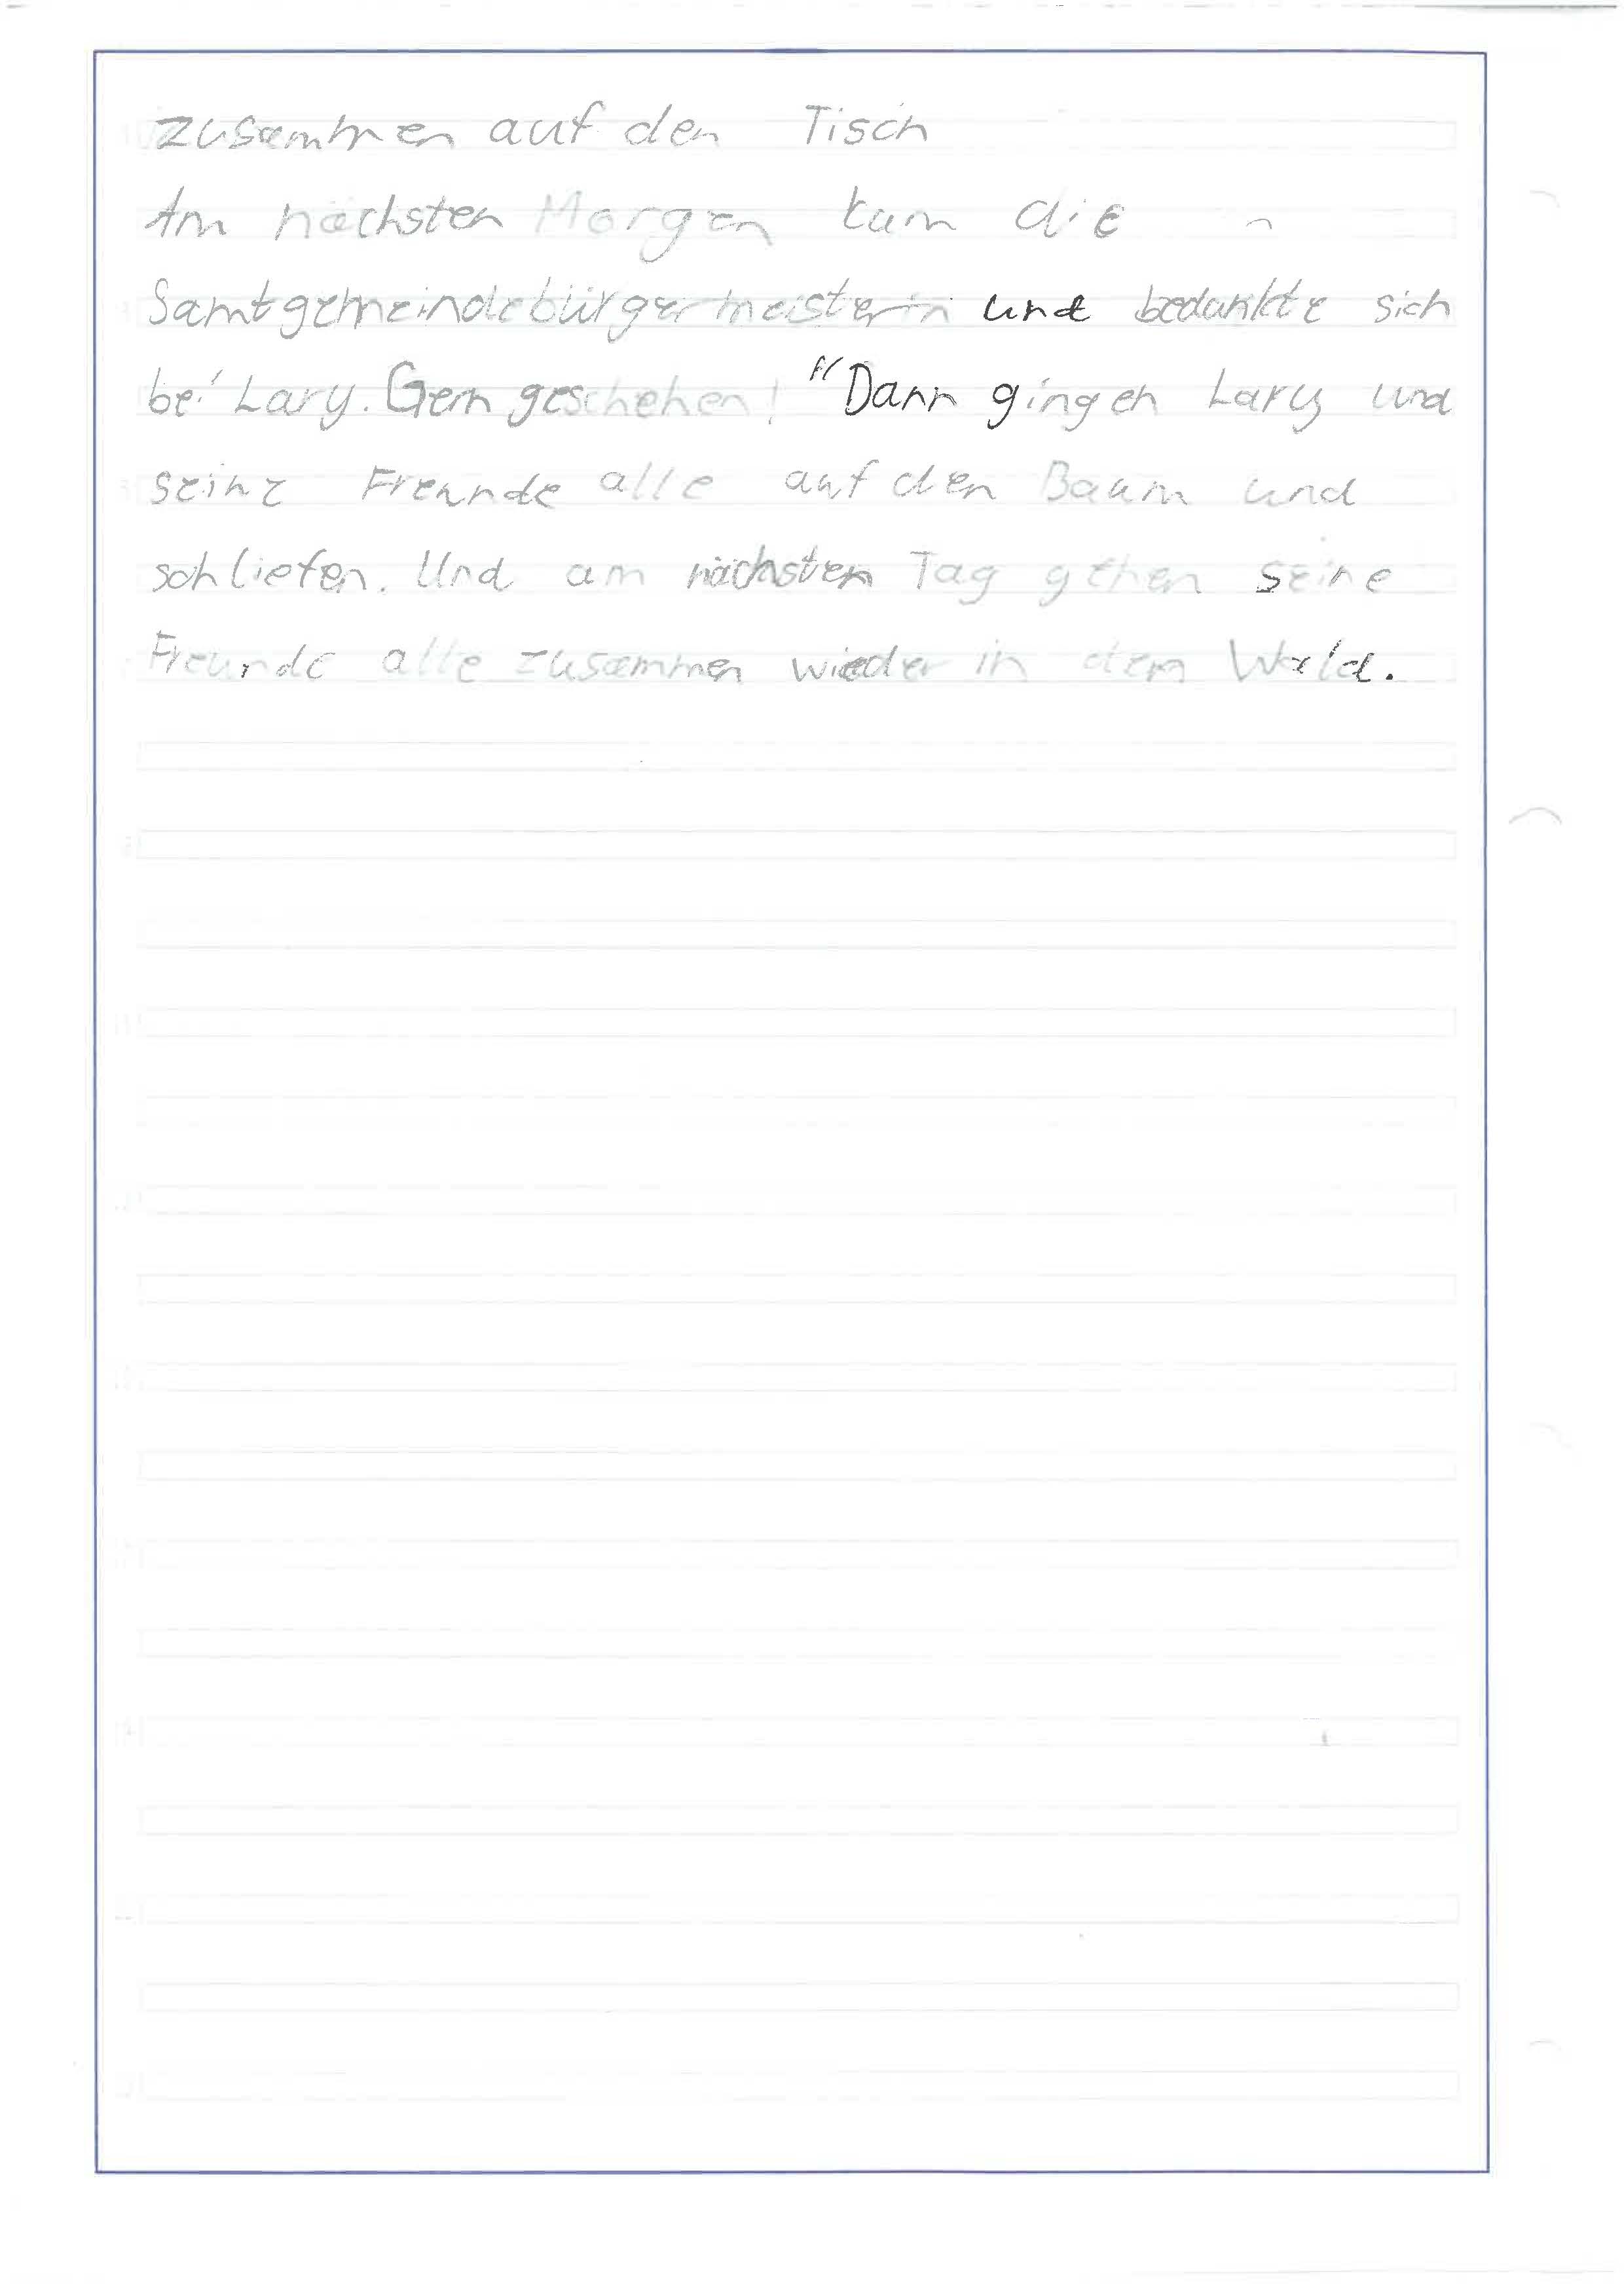 zusammen auf den Tisch
Am nächsten Morgen kam die
Samtgemeindebürgermeisterin und bedankte sich
bei Lary. Gern geschehen! "Dann gingen Lary und
seine Freunde alle auf den Baum und
schliefen. Und am nächsten Tag gehen seine
Freunde alle zusammen wieder in dem Wald.